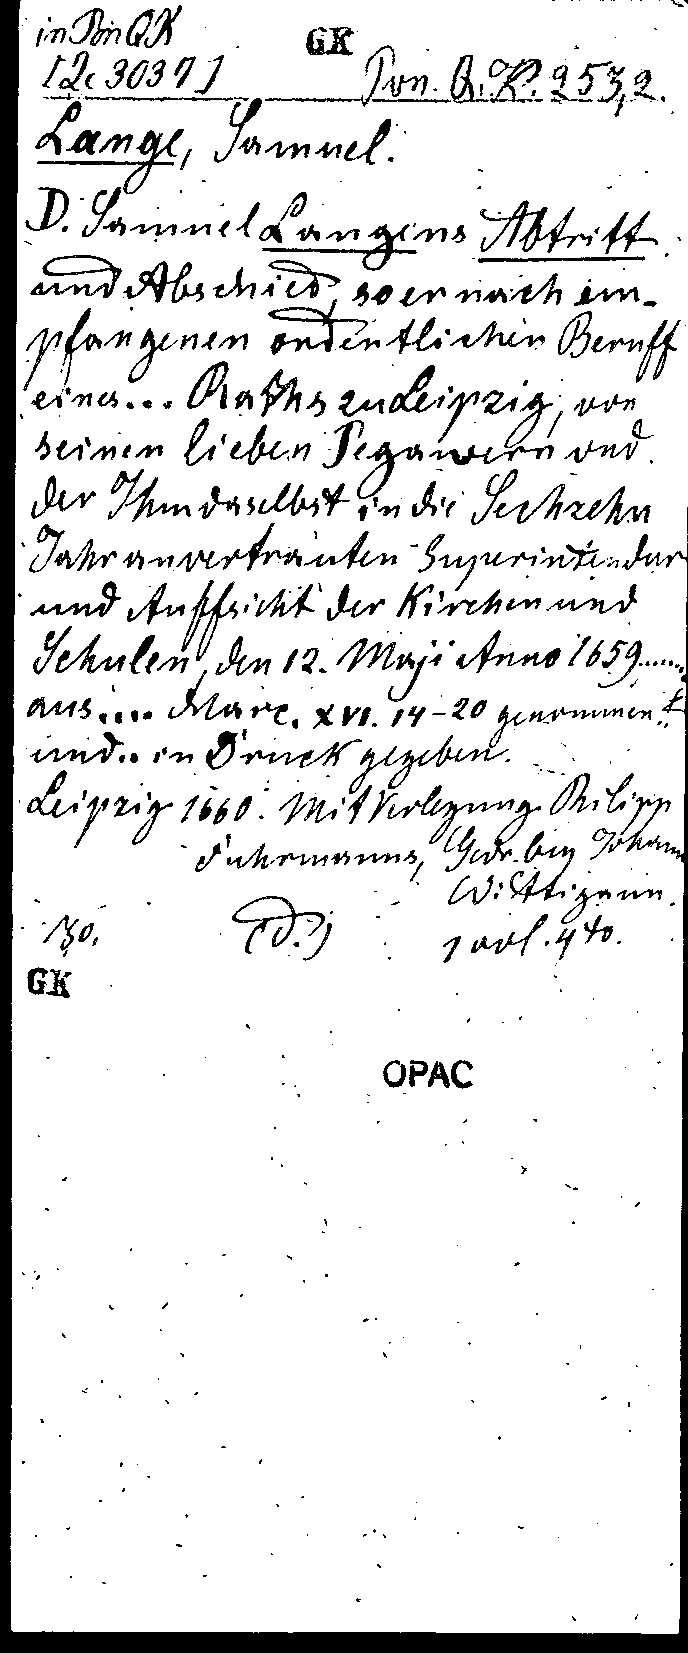 in Bn QK
GK
[Zc 3037]
Pon. Q. K. 253,2.
Lange, Samuel.
D. Samuel Langens Abtritt
und Abschied, so er nach em-
pfangenen ordentlichen Beruff
eines... Raths zu Leipzig, von
seinen lieben Pegawern vnd
der Ihm daselbst in die Sechzehn
Jahr anvertrauten Superintendur
und Auffsicht der Kirchen und
Schulen, den 12. Maji Anno 1659......
aus.... Marc. XVI. 14-20 genommen
und.. in Druck gegeben.
Leipzig 1660. Mit Verlegung Philipp
Fuhrmanns, Gedr. bey Johann
Wittigaun.
(d.)
1 vol. 4to.
GK
OPAC